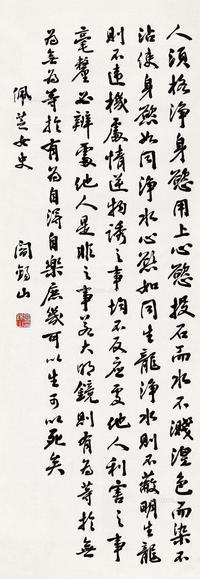 人须格净身慾用上心慾投石而水不溅湟色而染不
沾使身慾如同净水心慾如同生龍净水則不蔽明生龍
則不遠機處情逆物誘之事均不反應處他人利害之事
毫釐必辨處他人是非之事若大明鏡則有為等於無
為無為等於有為自得自樂庶幾可以生可以死矣
佩芝女史
閻錫山